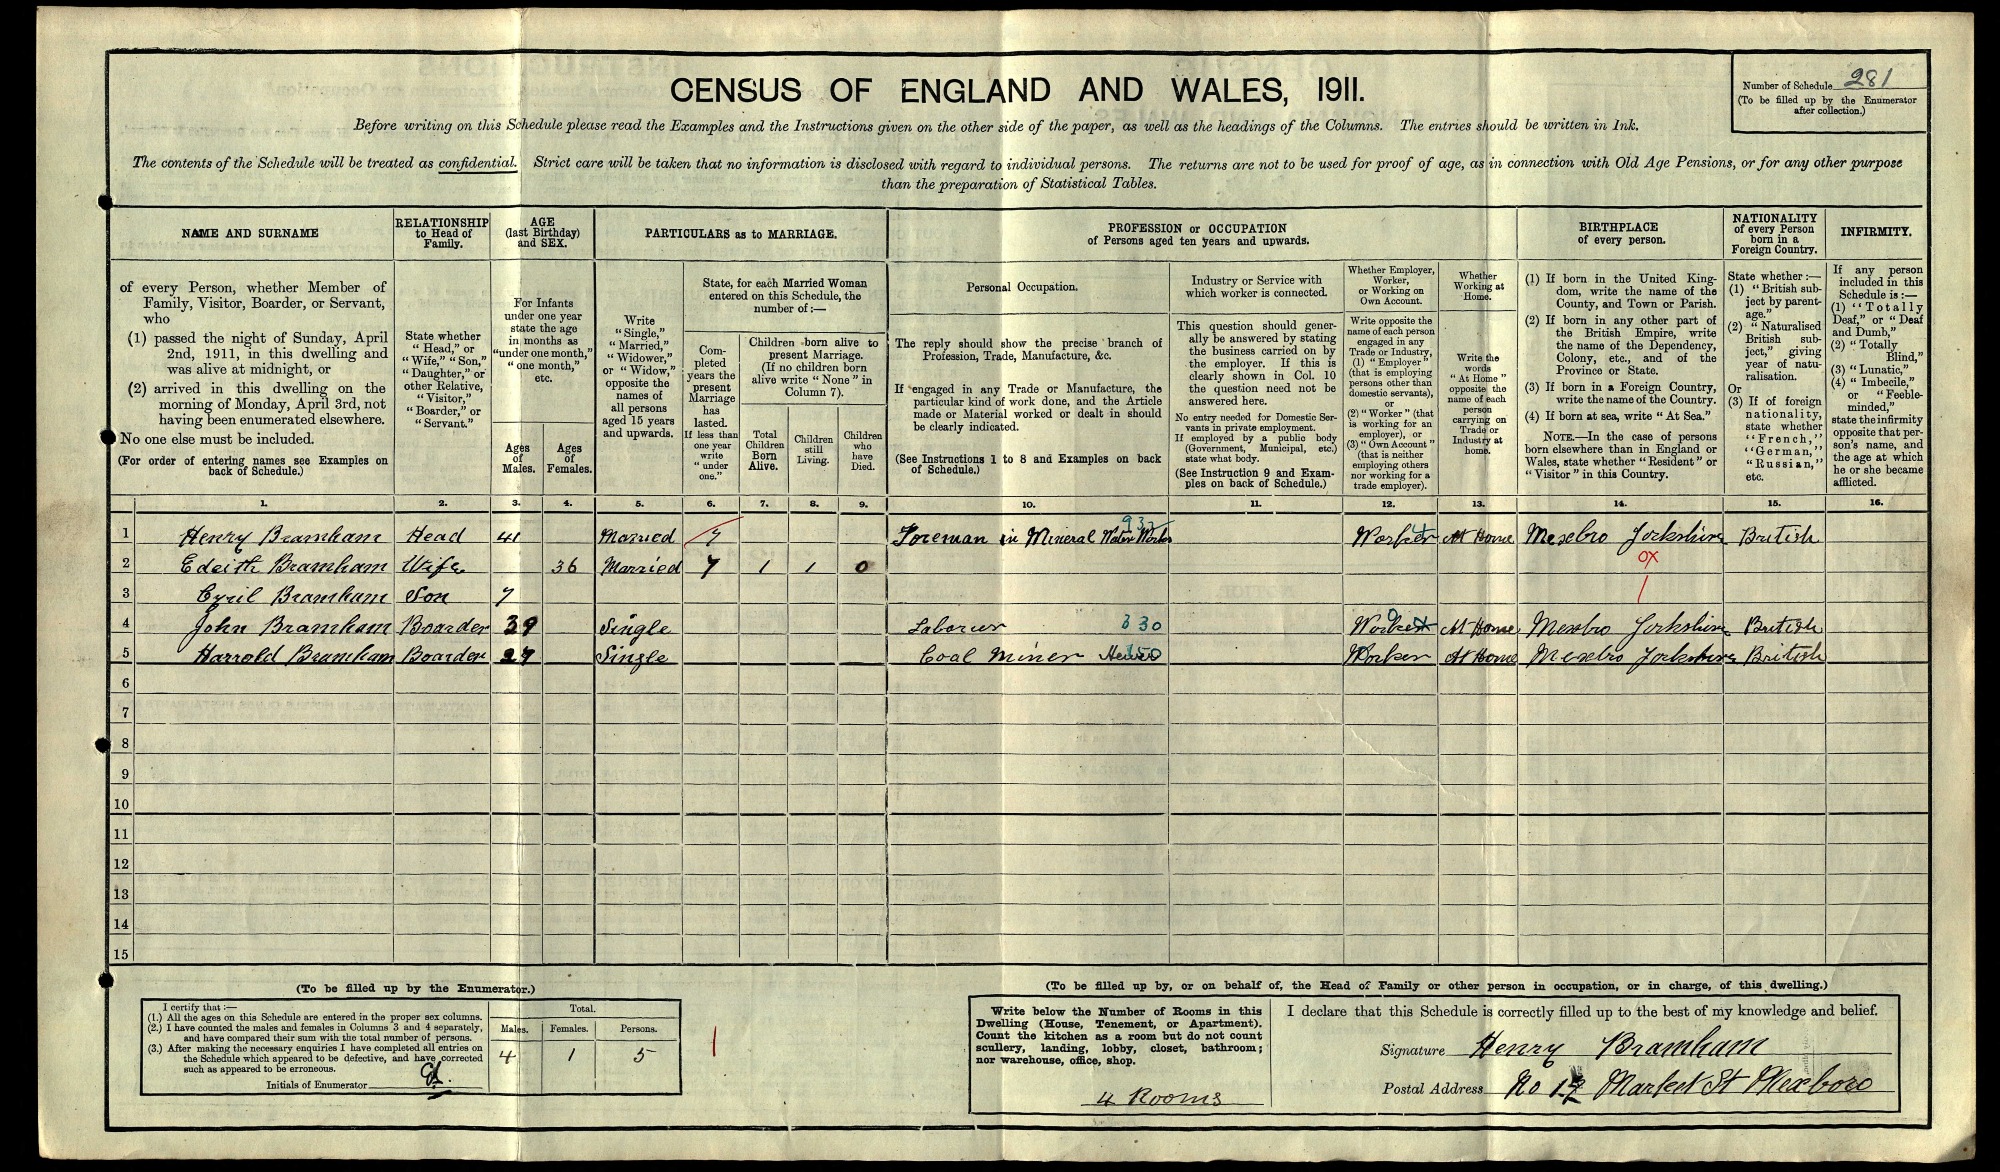 CENSUS OF ENGLAND AND WALES, 1911.
Number of Schedule 281
(To be filled up by the Enumerator
after collection.)
Before writing on this Schedule please read the Examples and the Instructions given on the other side of the paper, as well as the headings of the Columns. The entries should be written in Ink.
The contents of the Schedule will be treated as confidential. Strict care will be taken that no information is disclosed with regard to individual persons. The returns are not to be used for proof of age, as in connection with Old Age Pensions, or for any other purpose
than the preparation of Statistical Tables.
NAME AND SURNAME
of every Person, whether Member of
Family, Visitor, Boarder, or Servant,
who
(1) passed the night of Sunday, April
2nd, 1911, in this dwelling and
was alive at midnight, or
(2) arrived in this dwelling on the
morning of Monday, April 3rd, not
having been enumerated elsewhere.
No one else must be included.
(For order of entering names see Examples on
back of Schedule.)
RELATIONSHIP
to Head of
Family.
State whether
"Head," or
"Wife," "Son,"
"Daughter," or
other Relative,
"Visitor,"
"Boarder," or
"Servant."
AGE
(last Birthday)
and SEX.
For Infants
under one year
state the age
in months as
"under one month,"
"one month,"
etc.
Ages
of
Males.
Ages
of
Females.
PARTICULARS as to MARRIAGE.
Write
"Single,"
"Married,"
"Widower,"
or "Widow,"
opposite the
names of
all persons
aged 15 years
and upwards.
State, for each Married Woman
entered on this Schedule, the
number of:—
Com-
pleted
years the
present
Marriage
has
lasted.
If less than
one year
write
"under
one."
Children born alive to
present Marriage.
(If no children born
alive write "None" in
Column 7).
Total
Children
Born
Alive.
Children
still
Living.
Children
who
have
Died.
PROFESSION or OCCUPATION
of Persons aged ten years and upwards.
Personal Occupation.
The reply should show the precise branch of
Profession, Trade, Manufacture, &c.
If engaged in any Trade or Manufacture, the
particular kind of work done, and the Article
made or Material worked or dealt in should
be clearly indicated.
(See Instructions 1 to 8 and Examples on back
of Schedule.)
Industry or Service with
which worker is connected.
This question should gener-
ally be answered by stating
the business carried on by
the employer. If this is
clearly shown in Col. 10
the question need not be
answered here.
No entry needed for Domestic Ser-
vants in private employment.
If employed by a public body
(Government, Municipal, etc.)
state what body.
(See Instruction 9 and Exam-
ples on back of Schedule.)
Whether Employer,
Worker,
or Working on
Own Account.
Write opposite the
name of each person
engaged in any
Trade or Industry,
(1) "Employer"
(that is employing
persons other than
domestic servants),
or
(2) "Worker" (that
is working for an
employer), or
(3) "Own Account"
(that is neither
employing others
nor working for a
trade employer).
Whether
Working at
Home.
Write the
words
"At Home"
opposite the
name of each
person
carrying on
Trade or
Industry at
home.
BIRTHPLACE
of every person.
(1) If born in the United King-
dom, write the name of the
County, and Town or Parish.
(2) If born in any other part of
the British Empire, write
the name of the Dependency,
Colony, etc., and of the
Province or State.
(3) If born in a Foreign Country,
write the name of the Country.
(4) If born at sea, write "At Sea."
NOTE.—In the case of persons
born elsewhere than in England or
Wales, state whether "Resident" or
"Visitor" in this Country.
NATIONALITY
of every Person
born in a
Foreign Country.
State whether:—
(1) "British sub-
ject by parent-
age."
(2) "Naturalised
British sub-
ject," giving
year of natu-
ralisation.
Or
(3) If of foreign
nationality,
state whether
"French,"
"German,"
"Russian,"
etc.
INFIRMITY.
If any person
included in this
Schedule is:—
(1) "Totally
Deaf," or "Deaf
and Dumb,"
(2) "Totally
Blind,"
(3) "Lunatic,"
(4) "Imbecile,"
or "Feeble-
minded,"
state the infirmity
opposite that per-
son's name, and
the age at which
he or she became
afflicted.
1. 2. 3. 4. 5. 6. 7. 8. 9. 10. 11. 12. 13. 14. 15. 16.
1 Henry Bramham Head 41 Married 7 Foreman in Mineral Water Works 937 Worker 4 At Home Mexbro Yorkshire British
2 Edeith Bramham Wife 36 Married 7 1 1 0 OX
3 Cyril Bramham Son 7
4 John Bramham Boarder 39 Single Laborier 330 Worker At Home Mexbro Yorkshire British
5 Harrold Bramham Boarder 27 Single Coal Miner Worker At Home Mexbro Yorkshire British
6
7
8
9
10
11
12
13
14
15
(To be filled up by the Enumerator.)
I certify that:—
(1.) All the ages on this Schedule are entered in the proper sex columns.
(2.) I have counted the males and females in Columns 3 and 4 separately,
and have compared their sum with the total number of persons.
(3.) After making the necessary enquiries I have completed all entries on
the Schedule which appeared to be defective, and have corrected
such as appeared to be erroneous.
Initials of Enumerator
Total.
Males. Females. Persons.
4 1 5
(To be filled up by, or on behalf of, the Head of Family or other person in occupation, or in charge, of this dwelling.)
Write below the Number of Rooms in this
Dwelling (House, Tenement, or Apartment).
Count the kitchen as a room but do not count
scullery, landing, lobby, closet, bathroom;
nor warehouse, office, shop.
4 Rooms
I declare that this Schedule is correctly filled up to the best of my knowledge and belief.
Signature Henry Bramham
Postal Address No Market St Mexboro